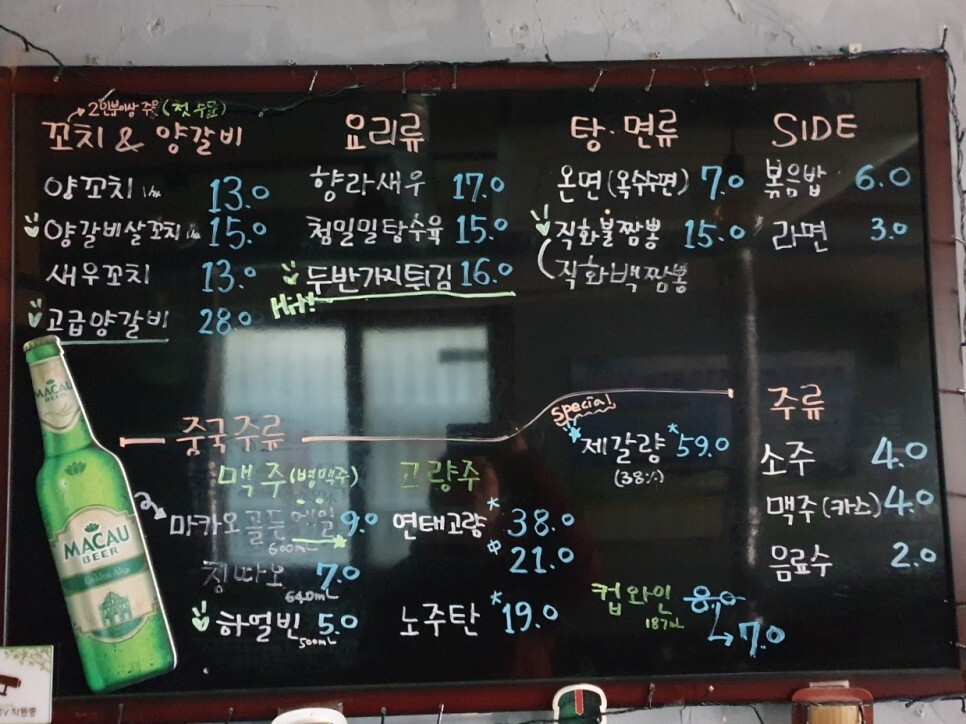 2인분이상 주문 (첫 주문)
꼬치 & 양갈비
양꼬치 13.0
양갈비살꼬치 15.0
새우꼬치 13.0
고급양갈비 28.0
요리류
향라새우 17.0
찹밀탕수육 15.0
두반가지튀김 16.0
Hit!
탕.면류
온면(옥수수면) 7.0
직화불짬뽕 15.0
직화백짬뽕
SIDE
볶음밥 6.0
라면 3.0
중국주류
맥주(병맥주)
마카오 골든에일 9.0
600ml
칭따오 7.0
640ml
하얼빈 5.0
500ml
고량주
연태고량 38.0
中 21.0
노주탄 19.0
Special
제갈량 59.0
(38%)
컵와인 8.0
187ml
7.0
주류
소주 4.0
맥주(카스) 4.0
음료수 2.0
MACAU
BEER
MACAU
BEER
Golden Ale